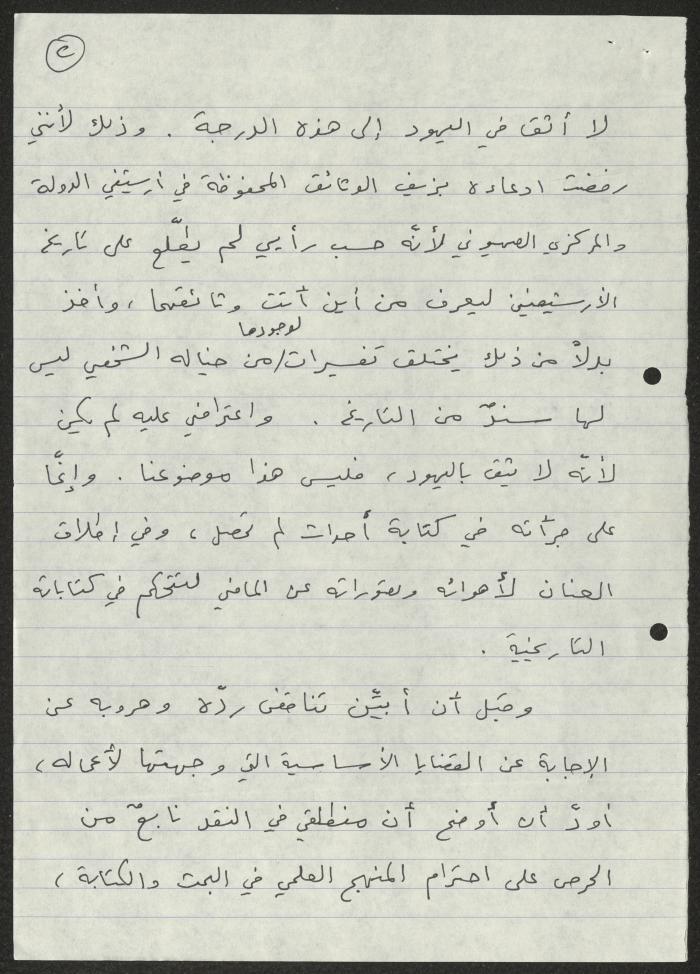 ٢
لا أثق في اليهود إلى هذه الدرجة . وذلك لأنني
رفضت ادعاءه بزيف الوثائق المحفوظة في ارشيفي الدولة
والمركزي الصهيوني لأنّه حسب رأيي لم يطّلع على تاريخ
الأرشيفين ليعرف من أين أتت وثائقهما ، وأخذ
لوجودها
بدلاً من ذلك يختلق تفسيرات/من خياله الشخصي ليس
لها سندٌ من التاريخ . واعتراضي عليه لم يكن
لأنّه لا يثق باليهود ، فليس هذا موضوعنا . وإنّما
على جرأته في كتابة أحداث لم تحصل ، وفي إطلاق
العنان لأهوائه وتصوراته عن الماضي لتتحكم في كتاباته
التاريخية .
وقبل أن أبيّن تناقض ردّه وهروبه عن
الإجابة عن القضايا الأساسية التي وجهتها لأعماله ،
أودّ أن أوضح أن منطلقي في النقد نابعٌ من
الحرص على احترام المنهج العلمي في البحث والكتابة ،